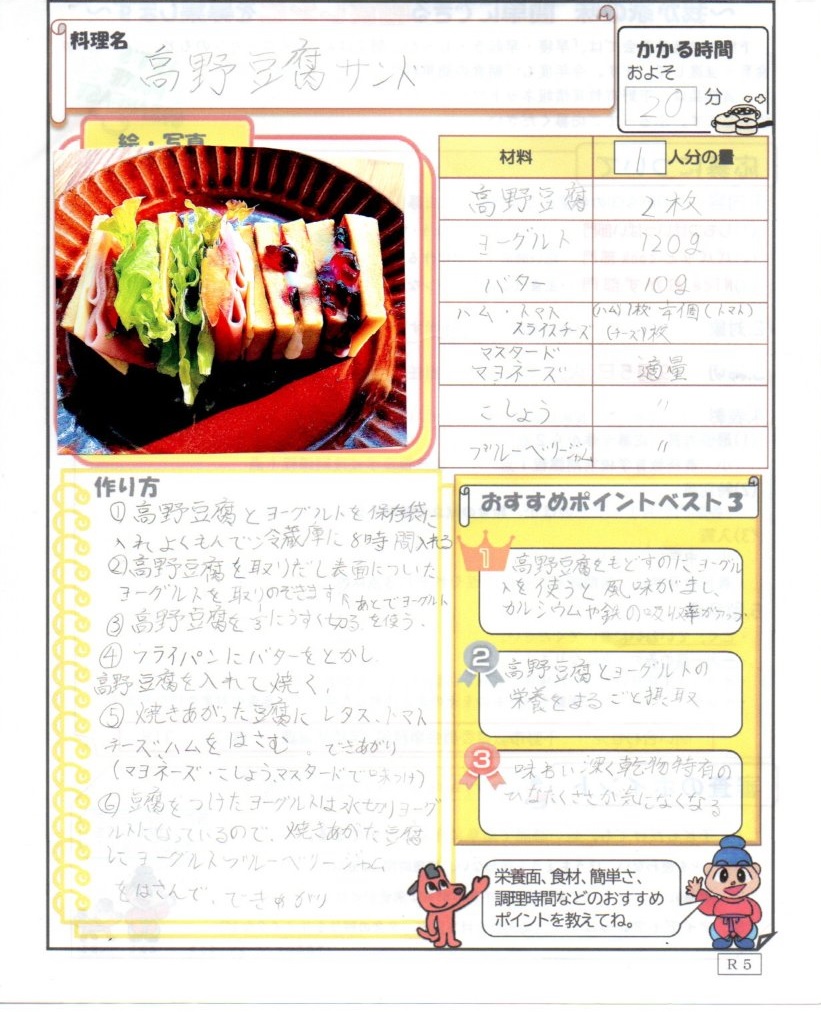 料理名
高野豆腐サンド
かかる時間
およそ
20分
絵・写真
材料 1人分の量
高野豆腐 2枚
ヨーグルト 120g
バター 10g
ハム・トマト (ハム)1枚 (トマト)
スライスチーズ (チーズ)1枚
マスタード
マヨネーズ 適量
こしょう 〃
ブルーベリージャム 〃
作り方
①高野豆腐とヨーグルトを保存袋に
入れよくもんで冷蔵庫に8時間入れる
②高野豆腐を取りだし表面についた
ヨーグルトを取りのぞきます
あとでヨーグルト
を使う.
③高野豆腐を うすく切る
④フライパンにバターをとかし
高野豆腐を入れて焼く,
⑤焼きあがった豆腐にレタス、トマト
チーズ、ハムをはさむ。できあがり
(マヨネーズ・こしょう、マスタードで味つけ)
⑥豆腐をつけたヨーグルトは水切りヨーグ
ルトになっているので、焼きあがた豆腐
にヨーグルトブルーベリージャム
をはさんで、できあがり
おすすめポイントベスト3
1
高野豆腐をもどすのにヨーグル
トを使うと風味がまし、
カルシウムや鉄の吸収率がアップ
2
高野豆腐とヨーグルトの
栄養をまるごと摂取
3
味わい深く乾物特有の
ひなたくささが気になくなる
栄養面、食材、簡単さ、
調理時間などのおすすめ
ポイントを教えてね。
R5